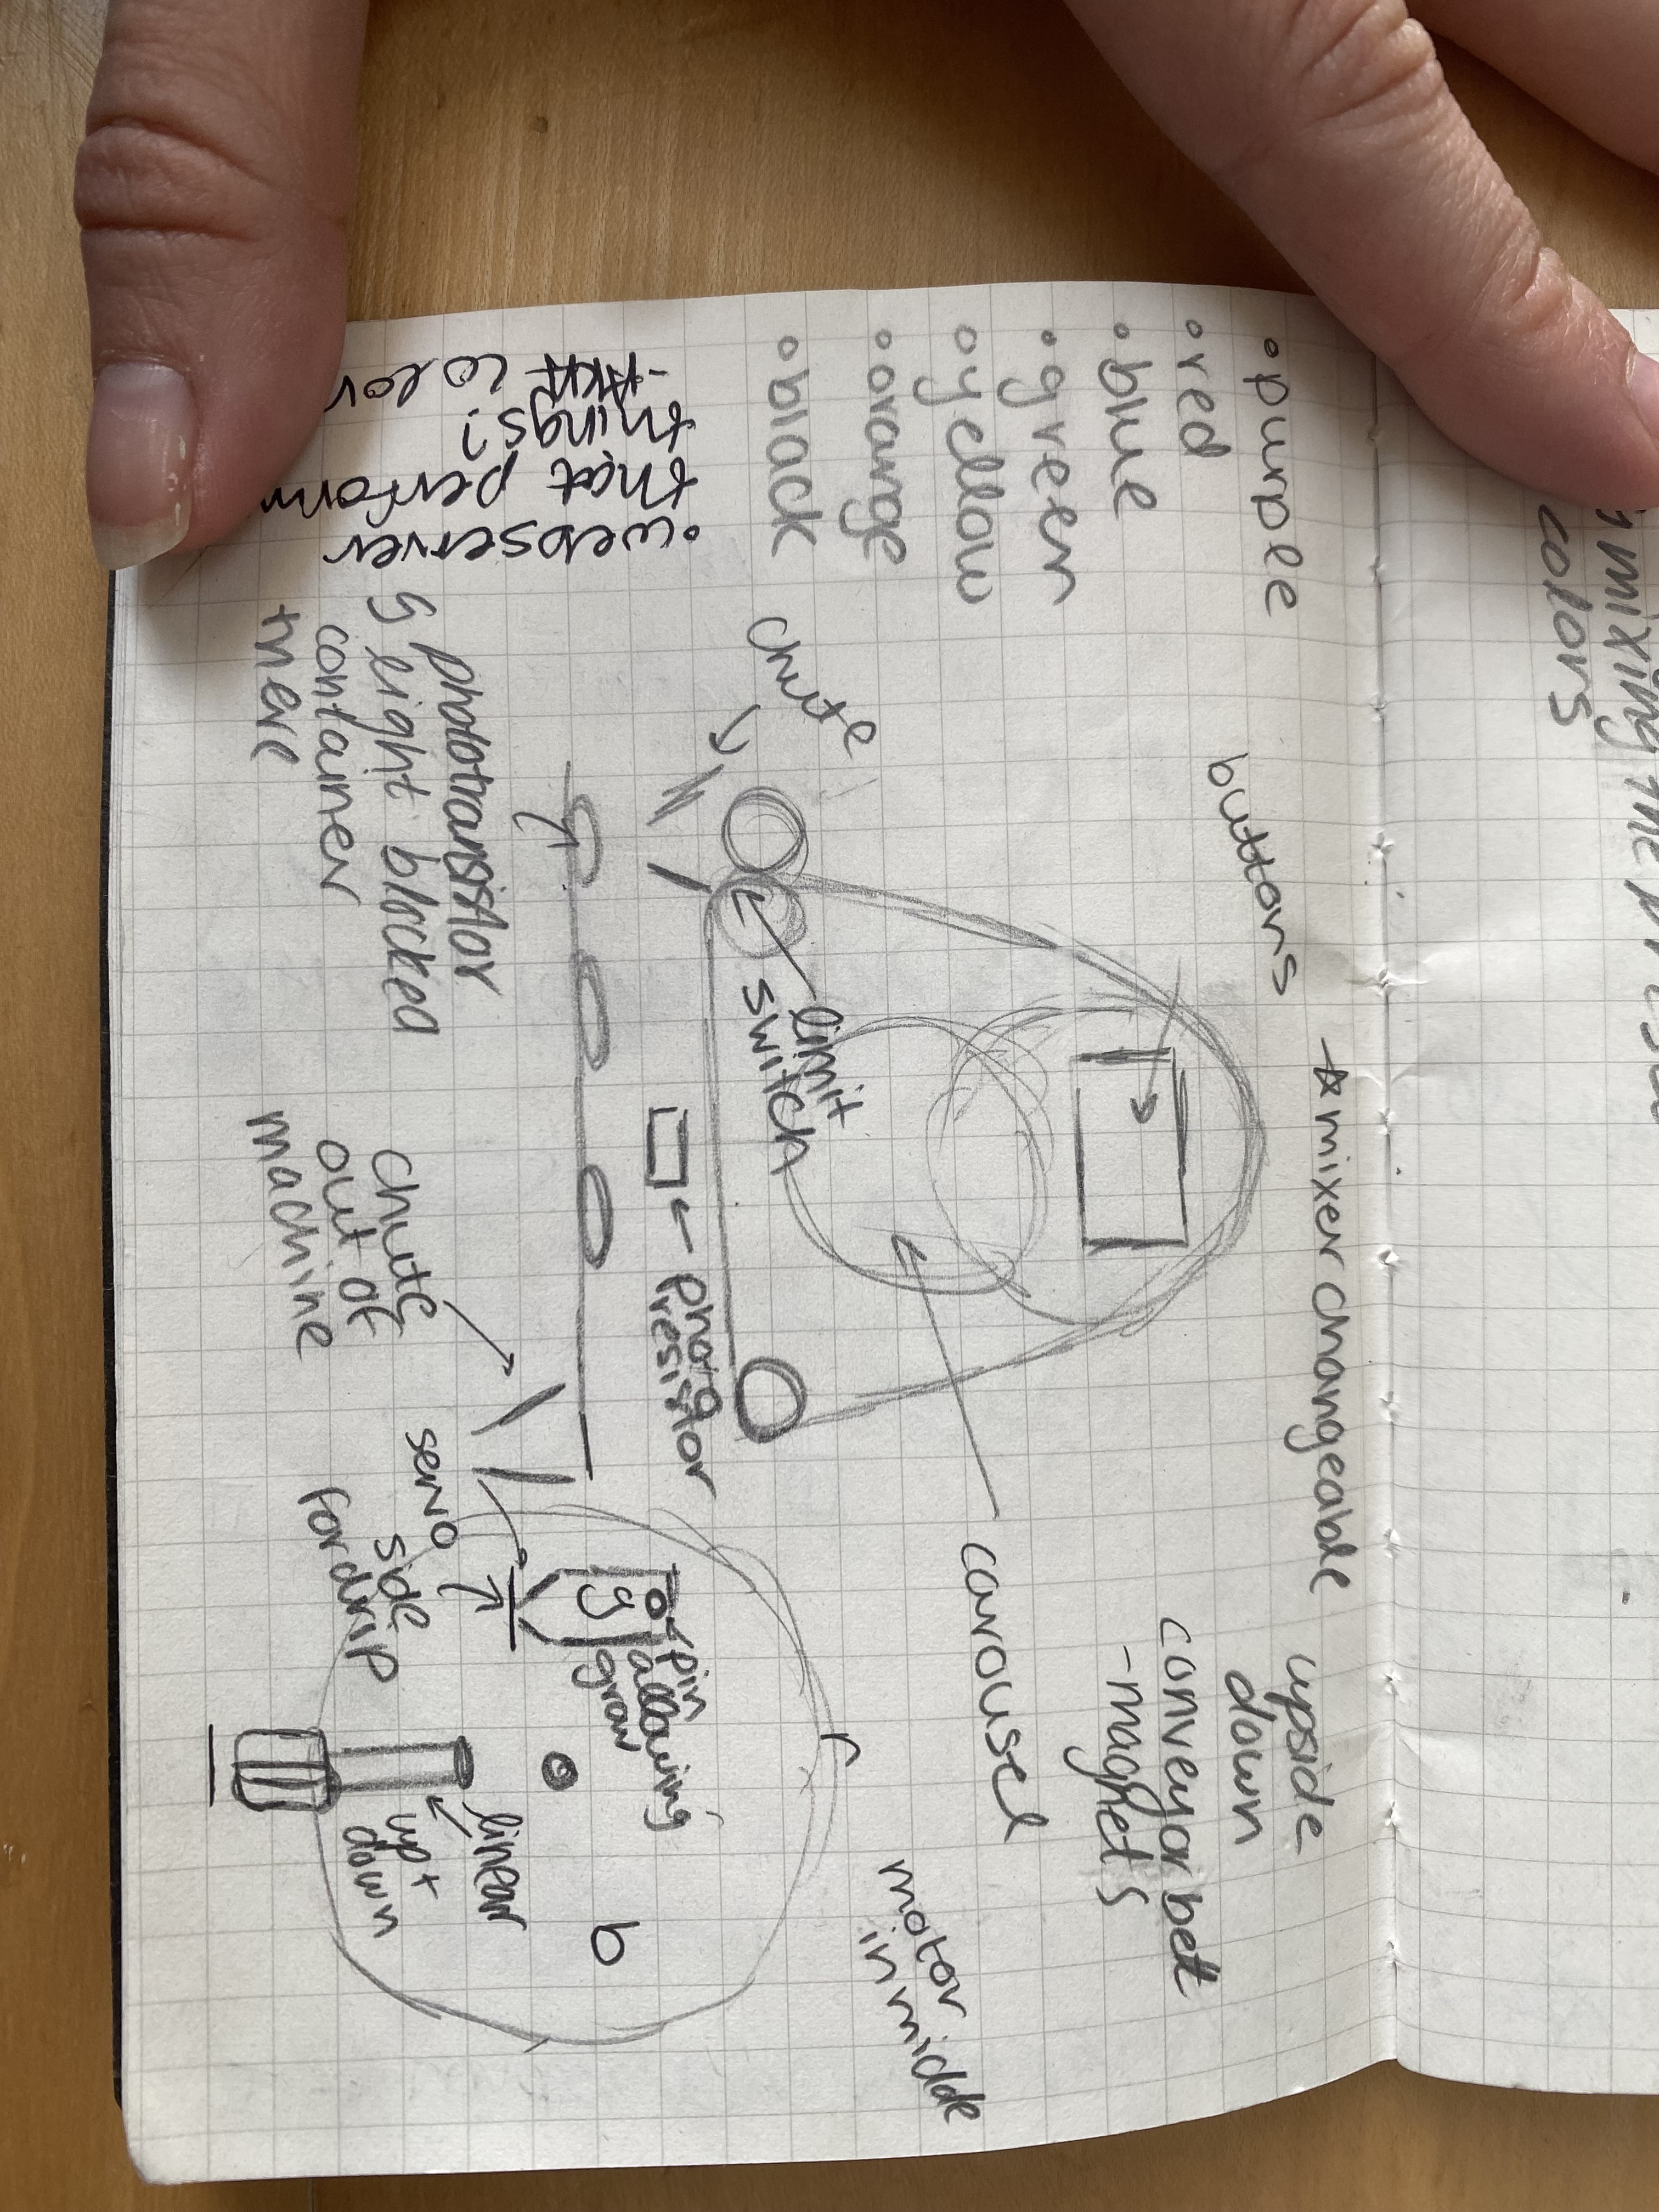 mixing the
colors
• purple
• red
• blue
• green
• yellow
• orange
• black
buttons
☆ mixer changeable
upside
down
conveyor belt
- magnets
chute
limit
switch
carousel
motor
in middle
photo
resistor
↳ phototransistor
↳ light blocked
container
there
chute
out of
machine
servo
side
for drip
g
pin
allowing
grav
b
linear
up +
down
• webserver
that perform
things?
color